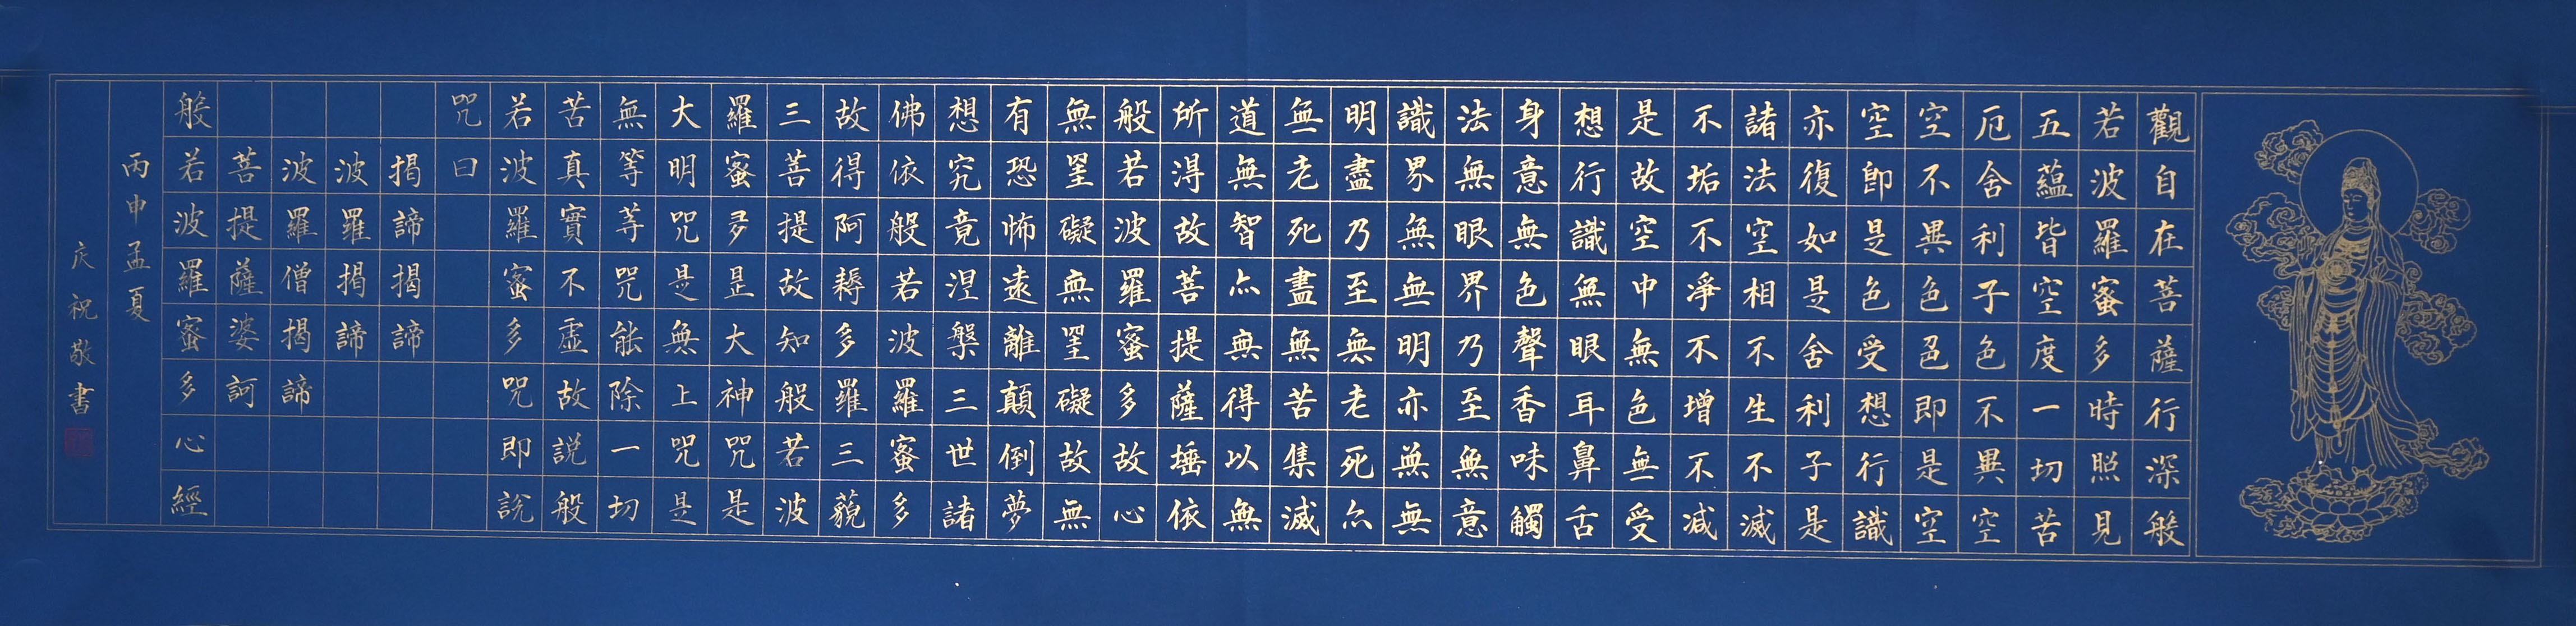 觀自在菩薩行深般
若波羅蜜多時照見
五蘊皆空度一切苦
厄舍利子色不異空
空不異色色即是空
空即是色受想行識
亦復如是舍利子是
諸法空相不生不滅
不垢不淨不增不減
是故空中無色無受
想行識無眼耳鼻舌
身意無色聲香味觸
法無眼界乃至無意
識界無無明亦無無
明盡乃至無老死亦
無老死盡無苦集滅
道無智亦無得以無
所得故菩提薩埵依
般若波羅蜜多故心
無罣礙無罣礙故無
有恐怖遠離顛倒夢
想究竟涅槃三世諸
佛依般若波羅蜜多
故得阿耨多羅三藐
三菩提故知般若波
羅蜜多是大神咒是
大明咒是無上咒是
無等等咒能除一切
苦真實不虛故說般
若波羅蜜多咒即說
咒曰
揭諦揭諦
波羅揭諦
波羅僧揭諦
菩提薩婆訶
般若波羅蜜多心經
丙申孟夏
庆祝敬書